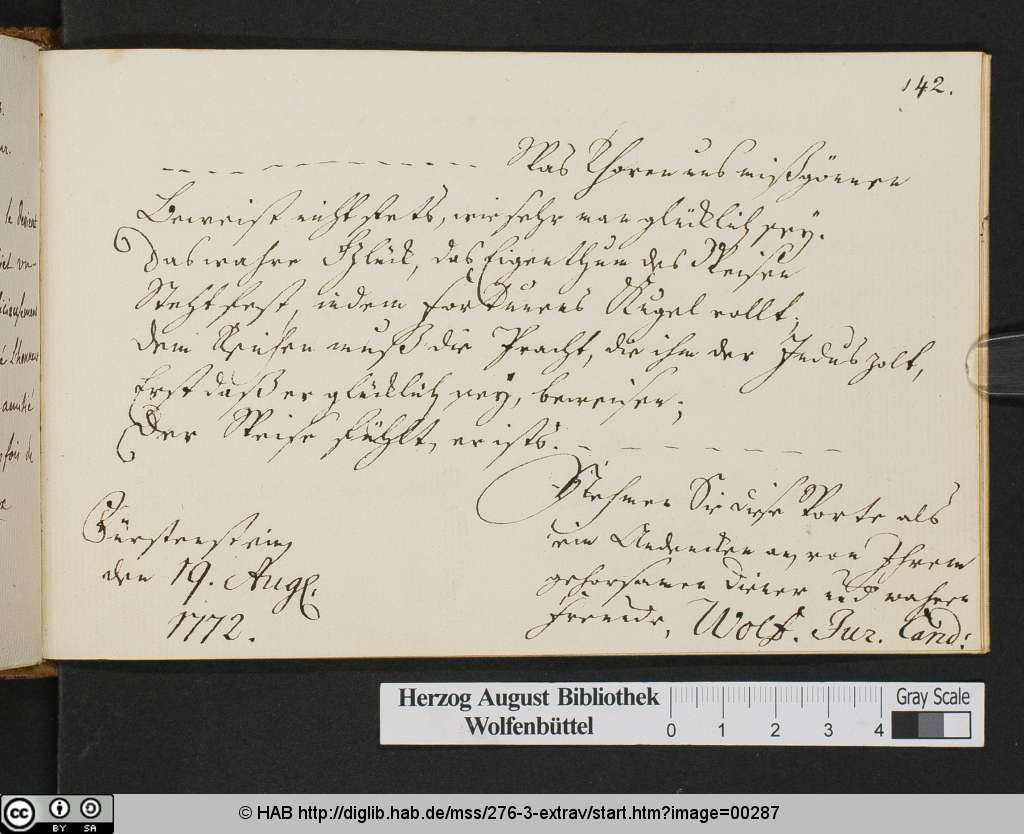 142.
– – – – – – – – – – – Was Thoren uns mißgönnen
Beweist nicht stets, wie sehr man glücklich sey.
Das wahre Glück, das Eigenthum des Weisen
Steht fest, indem Fortunens Kugel rollt;
Dem Reichen muß die Pracht, die ihm der Indus zolt,
Erst daß er glücklich sey, beweisen;
Der Weise fühlt, er ists. – – – – – – –
Nehmen Sie diese Worte als
ein Andencken an, von Ihrem
gehorsamen Diener und wahren
Freunde, Wolf. Jur. Cand:
Fürstenstein
den 19. Aug.
1772.
le
amitié
fois de
Herzog August Bibliothek
Wolfenbüttel
0 1 2 3 4
Gray Scale
cc BY SA
© HAB http://diglib.hab.de/mss/276-3-extrav/start.htm?image=00287